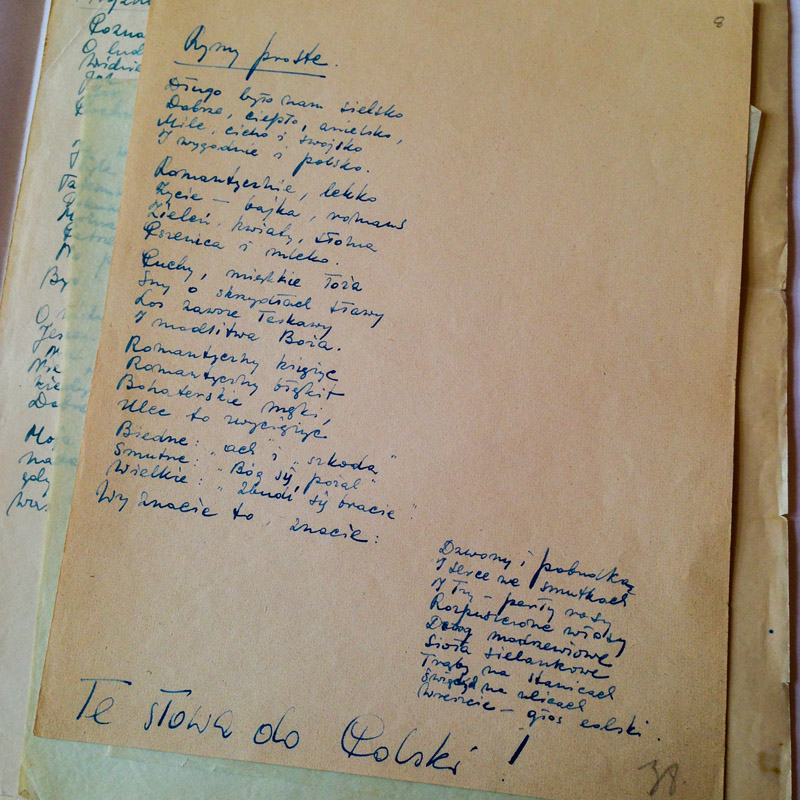 8
Rymy proste.
Długo było nam sielsko
Dobrze, ciepło, anielsko,
Mile, cicho i swojsko
I wygodnie i polsko.
Romantycznie, lekko
Życie – bajka, romans
Zieleń, kwiaty, słoma
Pszenica i mleko.
Puchy, miękkie łoża
Sny o skrzydłach sławy
Los zawsze łaskawy
I modlitwa Boża.
Romantyczny księżyc
Romantyczny błękit
Bohaterskie męki,
Ulec to zwyciężyć
Biedne: "ach" i "szkoda"
Smutne: "Bóg się pożal"
Wielkie: "zbudź się bracie"
Wy znacie to, znacie:
Dzwony i pobudkę
I serce we smutkach
I łzy – perły rosy
Rozpuszczone włosy
modrzewiowe
Sioła sielankowe
Trąby na stanicach
na ulicach
Wreszcie – głos
Te słowa do Polski!
38.
Pozna
O lud
Widnie
Jak
By
Je
Nie
kied
Mo
gdy